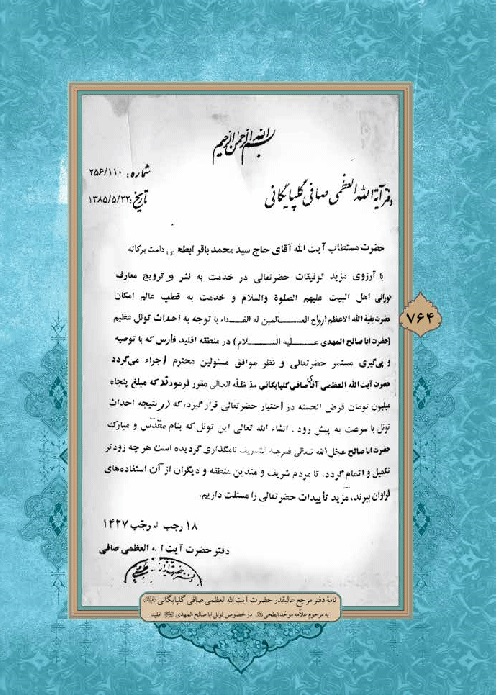 بسم الله الرحمن الرحیم
شماره: ۲۵۶/۱۱۰
دفتر آیة الله العظمی صافی گلپایگانی
تاریخ: ۱۳۸۵/۵/۲۳
حضرت مستطاب آیت الله آقای حاج سید محمد باقر ابطحی دامت برکاته
با آرزوی مزید توفیقات حضرتعالی در خدمت به نشر و ترویج معارف
نورانی اهل البیت علیهم الصلوة والسلام و خدمت به قطب عالم امکان
حضرت بقیة الله الاعظم ارواح العالمین له الفداء با توجه به احداث تونل عظیم
(حضرت ابا صالح المهدی علیه السلام) در منطقه اقلید، فارس که با توصیه
و پی‌گیری مستمر حضرتعالی و نظر موافق مسئولین محترم اجراء می‌گردد
حضرت آیت الله العظمی آقای صافی گلپایگانی مد ظله العالی مقرر فرمودند که مبلغ پنجاه
میلیون تومان قرض الحسنه در اختیار حضرتعالی قرار گیرد، که در نتیجه احداث
تونل با سرعت به پیش رود. انشاء الله تعالی این تونل که بنام مقدس و مبارک
حضرت ابا صالح عجل الله تعالی فرجه الشریف نامگذاری گردیده است هر چه زودتر
تکمیل و اتمام گردد. تا مردم شریف و متدین منطقه و دیگران از آن استفاده‌های
فراوان ببرند، مزید تأییدات حضرتعالی را مسئلت داریم.
۱۸ رجب المرجب ۱۴۲۷
دفتر حضرت آیت الله العظمی صافی
۷۶۴
نامهٔ دفتر مرجع عالیقدر حضرت آیت الله العظمی صافی گلپایگانی
به مرحوم علامه موحد ابطحی در خصوص تونل ابا صالح المهدی اقلید